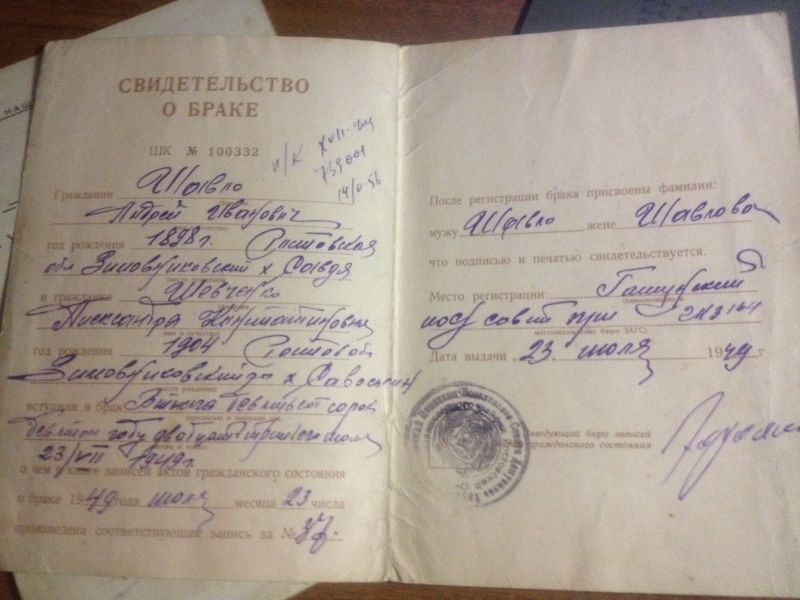 НАШ
СВИДЕТЕЛЬСТВО
О БРАКЕ
ШК № 100332
п/к XVII-
739001
14/V-56
Гражданин Шавло
Андрей Иванович
год рождения 1898г. Ростовская
обл Зимовниковский х
и гражданка Шевченко
Александра Константиновна
год рождения 1904 Ростов об
Зимовниковский ра х Савоськин
вступили в брак Тысяча девятьсот сорок
девятом году двадцать третьего июля
23/VII 1949г.
о чем в книге записей актов гражданского состояния
о браке 1949 года июля месяца 23 числа
произведена соответствующая запись за № 37.
После регистрации брака присвоены фамилии:
мужу Шавло жене Шавлова
что подписью и печатью свидетельствуется.
Место регистрации: Гашунский
посу совет при з 164
местонахождение бюро ЗАГС
Дата выдачи „ 23 июля 1949 г
Заведующий бюро записей
гражданского состояния